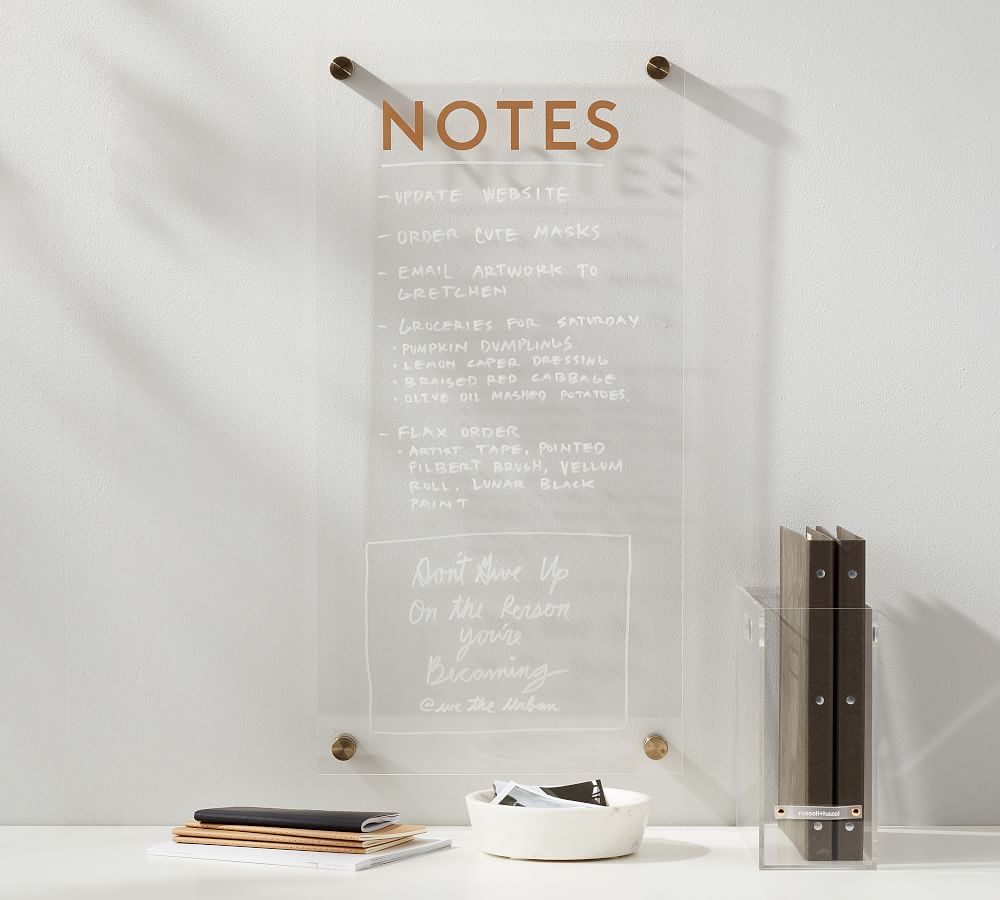 NOTES
- UPDATE WEBSITE
- ORDER CUTE MASKS
- EMAIL ARTWORK TO
GRETCHEN
- GROCERIES FOR SATURDAY
• PUMPKIN DUMPLINGS
• LEMON CAPER DRESSING
• BRAISED RED CABBAGE
• OLIVE OIL MASHED POTATOES.
- FLAX ORDER
• ARTIST TAPE, POINTED
FILBERT BRUSH, VELLUM
ROLL, LUNAR BLACK
PAINT
Don't Give Up
On the Person
You're
Becoming
@we the Urban
russell+hazel